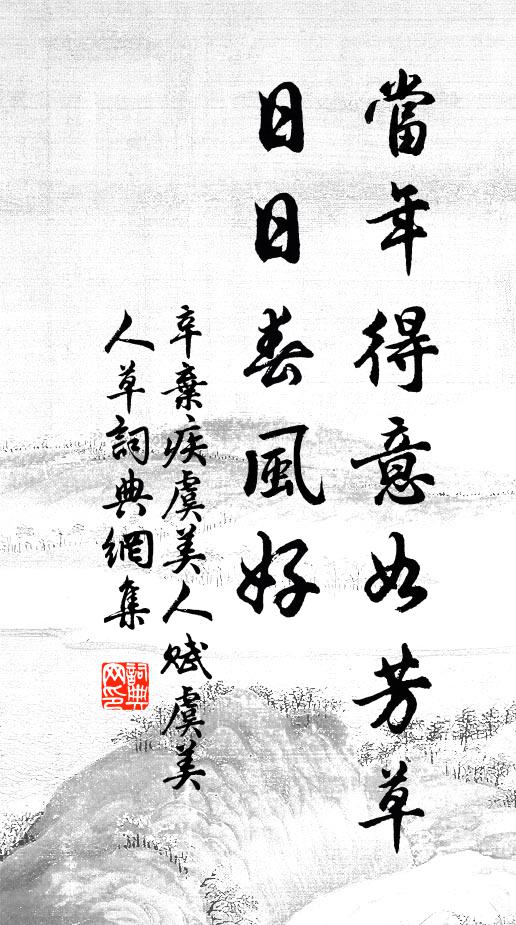 當年得意如芳草
日日春風好
辛棄疾虞美人賦虞美
人草詞典網集
詞典
网印